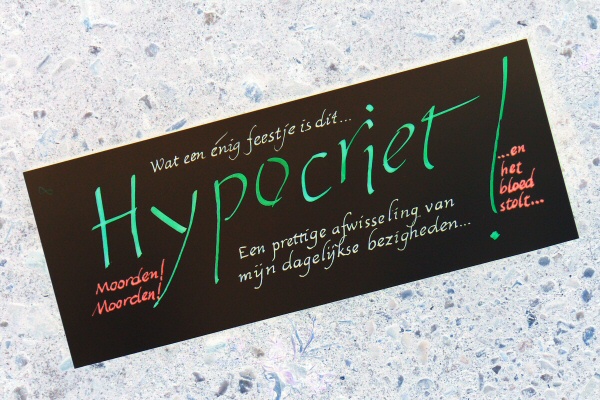 Wat een énig feestje is dit...
Hypocriet!
...en
het
bloed
stolt...
Een prettige afwisseling van
mijn dagelijkse bezigheden...
Moorden!
Moorden!